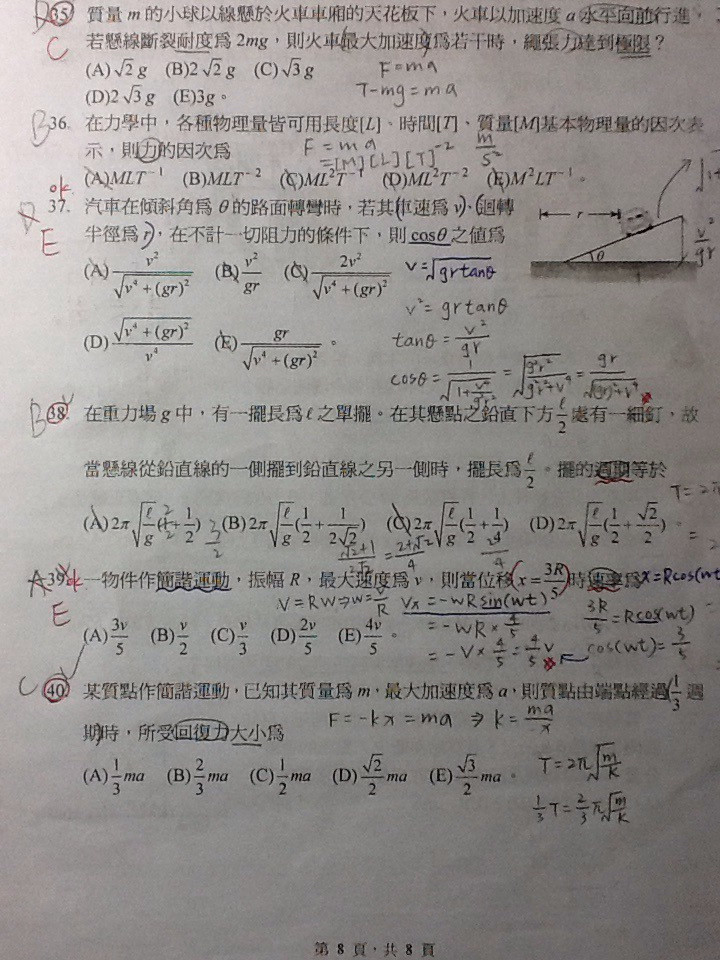 35. 質量 m 的小球以線懸於火車車廂的天花板下，火車以加速度 a 水平向前行進，
若懸線斷裂耐度為 2mg，則火車最大加速度為若干時，繩張力達到極限？
C
(A) √2 g (B) 2√2 g (C) √3 g
F = ma
(D) 2√3 g (E) 3g。
T - mg = ma
B 36. 在力學中，各種物理量皆可用長度[L]、時間[T]、質量[M]基本物理量的因次表
示，則力的因次為
F = ma
= [M][L][T]⁻²
m/s²
ok
(A) MLT⁻¹ (B) MLT⁻² (C) ML²T⁻¹ (D) ML²T⁻² (E) M²LT⁻¹。
37. 汽車在傾斜角為 θ 的路面轉彎時，若其車速為 v、迴轉
半徑為 r，在不計一切阻力的條件下，則 cosθ 之值為
E
r
θ
v²/gr
(A) v²/√(v⁴+(gr)²) (B) v²/gr (C) 2v²/√(v⁴+(gr)²)
v = √(gr tanθ)
v² = gr tanθ
(D) √(v⁴+(gr)²)/v⁴ (E) gr/√(v⁴+(gr)²)。
tanθ = v²/gr
cosθ = 1/√(1+v⁴/g²r²) = √(g²r²/(g²r²+v⁴)) = gr/√((gr)²+v⁴)
B 38. 在重力場 g 中，有一擺長為 ℓ 之單擺。在其懸點之鉛直下方 ℓ/2 處有一細釘，故
當懸線從鉛直線的一側擺到鉛直線之另一側時，擺長為 ℓ/2。擺的週期等於
(A) 2π√(ℓ/g)(1+1/2) (B) 2π√(ℓ/g)(1/2+1/(2√2)) (C) 2π√(ℓ/g)(1/2+1/2) (D) 2π√(ℓ/g)(1/2+√2/2)
(√2+1)/2√2 = (2+√2)/4
A 39. 一物件作簡諧運動，振幅 R，最大速度為 v，則當位移 x = 3R/5 時速率為
x = Rcos(wt)
E
V = RW ⇒ w = V/R
Vx = -wR sin(wt)
3R/5 = Rcos(wt)
(A) 3v/5 (B) v/2 (C) v/3 (D) 2v/5 (E) 4v/5。
= -wR × 4/5
= -V × 4/5 = 4/5 V
cos(wt) = 3/5
C 40. 某質點作簡諧運動，已知其質量為 m，最大加速度為 a，則質點由端點經過 1/3 週
期時，所受回復力大小為
F = -kx = ma ⇒ k = ma/-x
(A) 1/3 ma (B) 2/3 ma (C) 1/2 ma (D) √2/2 ma (E) √3/2 ma。
T = 2π√(m/k)
1/3 T = 2/3 π√(m/k)
第 8 頁，共 8 頁